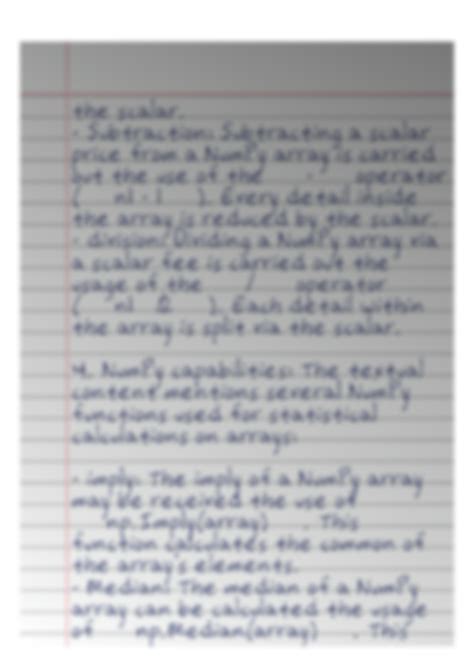 the scalar.
- Subtraction: Subtracting a scalar
price from a NumPy array is carried
out the use of the - operator
( n1 - 1 ). Every detail inside
the array is reduced by the scalar.
- division: Dividing a NumPy array via
a scalar fee is carried out the
usage of the / operator
( n1 2 ). Each detail within
the array is split via the scalar.
4. NumPy capabilities: The textual
content mentions several NumPy
functions used for statistical
calculations on arrays:
- imply: The imply of a NumPy array
may be received the use of
np.Imply(array) . This
function calculates the common of
the array's elements.
- Median: The median of a NumPy
array can be calculated the usage
of np.Median(array) . This